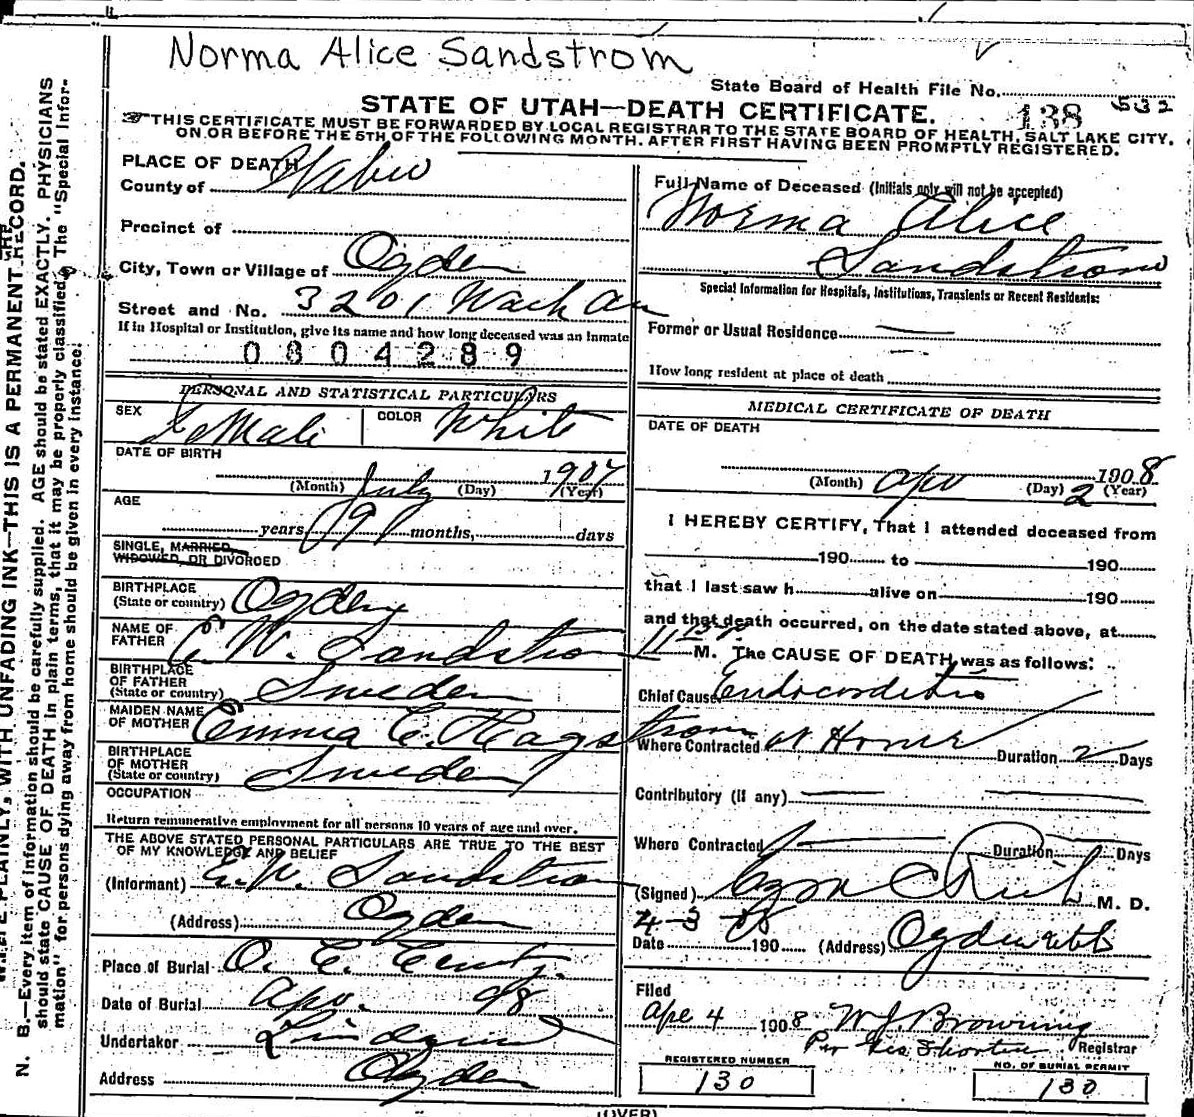 Norma Alice Sandstrom
State Board of Health File No.
STATE OF UTAH—DEATH CERTIFICATE.
138 532
THIS CERTIFICATE MUST BE FORWARDED BY LOCAL REGISTRAR TO THE STATE BOARD OF HEALTH, SALT LAKE CITY,
ON OR BEFORE THE 5TH OF THE FOLLOWING MONTH, AFTER FIRST HAVING BEEN PROMPTLY REGISTERED.
PLACE OF DEATH
County of Weber
Precinct of
City, Town or Village of Ogden
Street and No. 3201 Wash Av
If in Hospital or Institution, give its name and how long deceased was an Inmate
0804289
PERSONAL AND STATISTICAL PARTICULARS
SEX FeMale COLOR White
DATE OF BIRTH
(Month) July (Day) 1907 (Year)
AGE
years, 9 months, days
SINGLE, MARRIED,
WIDOWED, OR DIVORCED
BIRTHPLACE
(State or country) Ogden
NAME OF
FATHER E. W. Sandstrom
BIRTHPLACE
OF FATHER
(State or country) Sweden
MAIDEN NAME
OF MOTHER Emma C. Hagstrom
BIRTHPLACE
OF MOTHER
(State or country) Sweden
OCCUPATION
Return remunerative employment for all persons 10 years of age and over.
THE ABOVE STATED PERSONAL PARTICULARS ARE TRUE TO THE BEST
OF MY KNOWLEDGE AND BELIEF
(Informant) E. W. Sandstrom
(Address) Ogden
Place of Burial O. C. Cemty.
Date of Burial Apr.
Undertaker
Address Ogden
Full Name of Deceased (Initials only will not be accepted)
Norma Alice
Sandstrom
Special Information for Hospitals, Institutions, Transients or Recent Residents:
Former or Usual Residence
How long resident at place of death
MEDICAL CERTIFICATE OF DEATH
DATE OF DEATH
(Month) Apr (Day) 2 1908 (Year)
I HEREBY CERTIFY, That I attended deceased from
190 to 190
that I last saw h alive on 190
and that death occurred, on the date stated above, at
11 M. The CAUSE OF DEATH was as follows:
Chief Cause Endocarditis
Where Contracted at Home Duration 2 Days
Contributory (if any)
Where Contracted Duration Days
(Signed) Ezra C Rich M. D.
Date 4-3 1908 (Address) Ogden Utah
Filed
Apr 4 1908 W. J. Browning
Per Geo Shorten Registrar
REGISTERED NUMBER
130
NO. OF BURIAL PERMIT
130
(OVER)
WRITE PLAINLY, WITH UNFADING INK—THIS IS A PERMANENT RECORD.
N. B.—Every item of information should be carefully supplied. AGE should be stated EXACTLY. PHYSICIANS
should state CAUSE OF DEATH in plain terms, that it may be properly classified. The "Special Infor-
mation" for persons dying away from home should be given in every instance.